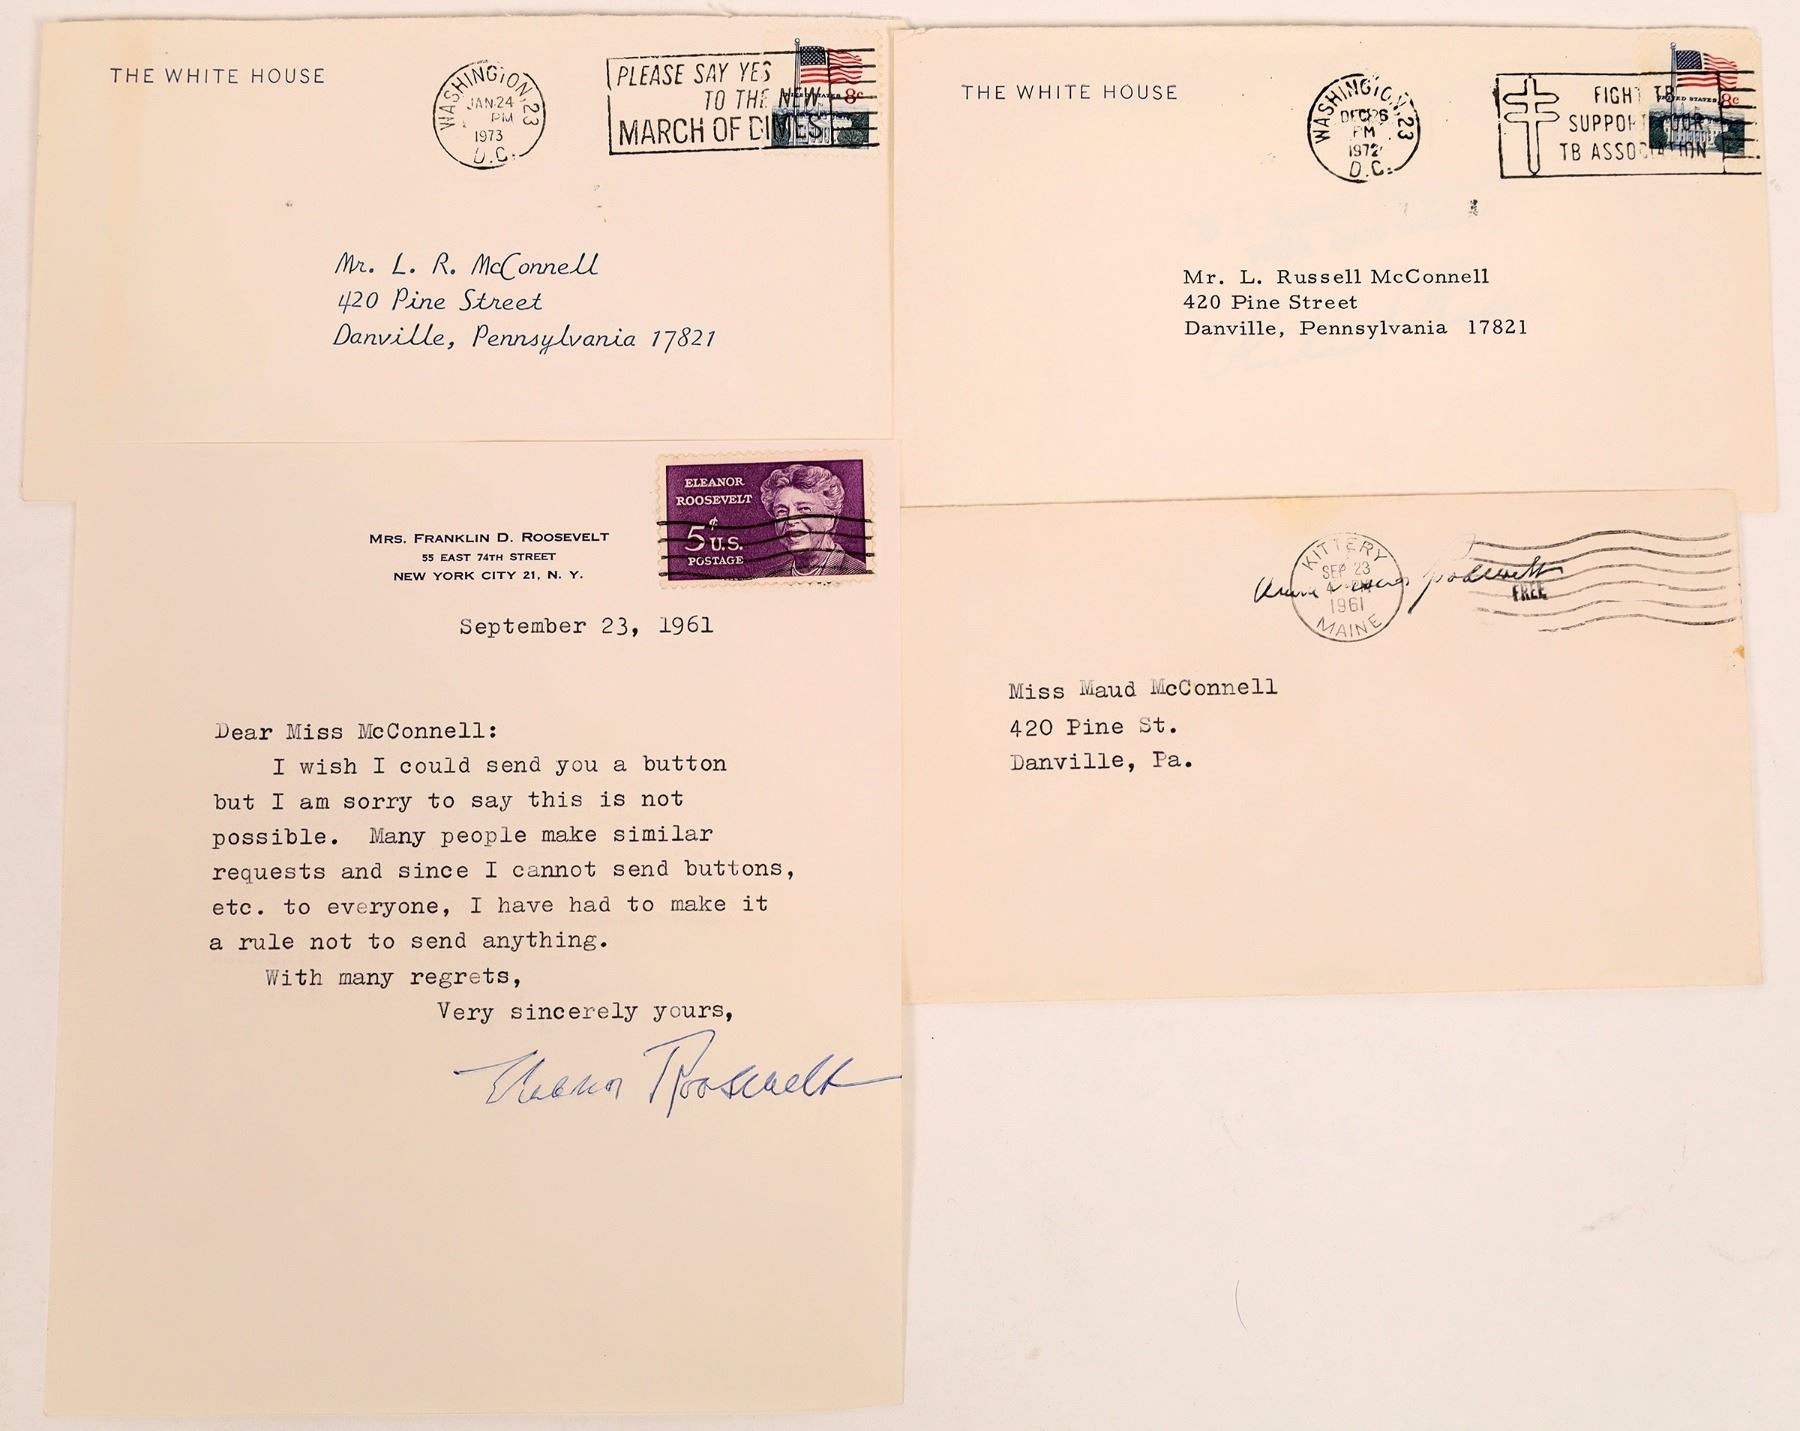 THE WHITE HOUSE
WASHINGTON, 23
JAN 24
PM
1973
D.C.
PLEASE SAY YES
TO THE NEW
MARCH OF DIMES
UNITED STATES 8c
Mr. L. R. McConnell
420 Pine Street
Danville, Pennsylvania 17821
THE WHITE HOUSE
WASHINGTON, 23
DEC 26
PM
1972
D.C.
FIGHT TB
SUPPORT YOUR
TB ASSOCIATION
UNITED STATES 8c
Mr. L. Russell McConnell
420 Pine Street
Danville, Pennsylvania 17821
ELEANOR
ROOSEVELT
5¢
U.S.
POSTAGE
MRS. FRANKLIN D. ROOSEVELT
55 EAST 74TH STREET
NEW YORK CITY 21, N. Y.
September 23, 1961
Dear Miss McConnell:
I wish I could send you a button
but I am sorry to say this is not
possible. Many people make similar
requests and since I cannot send buttons,
etc. to everyone, I have had to make it
a rule not to send anything.
With many regrets,
Very sincerely yours,
Eleanor Roosevelt
KITTERY
SEP 23
4 PM
1961
MAINE
Roosevelt
FREE
Miss Maud McConnell
420 Pine St.
Danville, Pa.